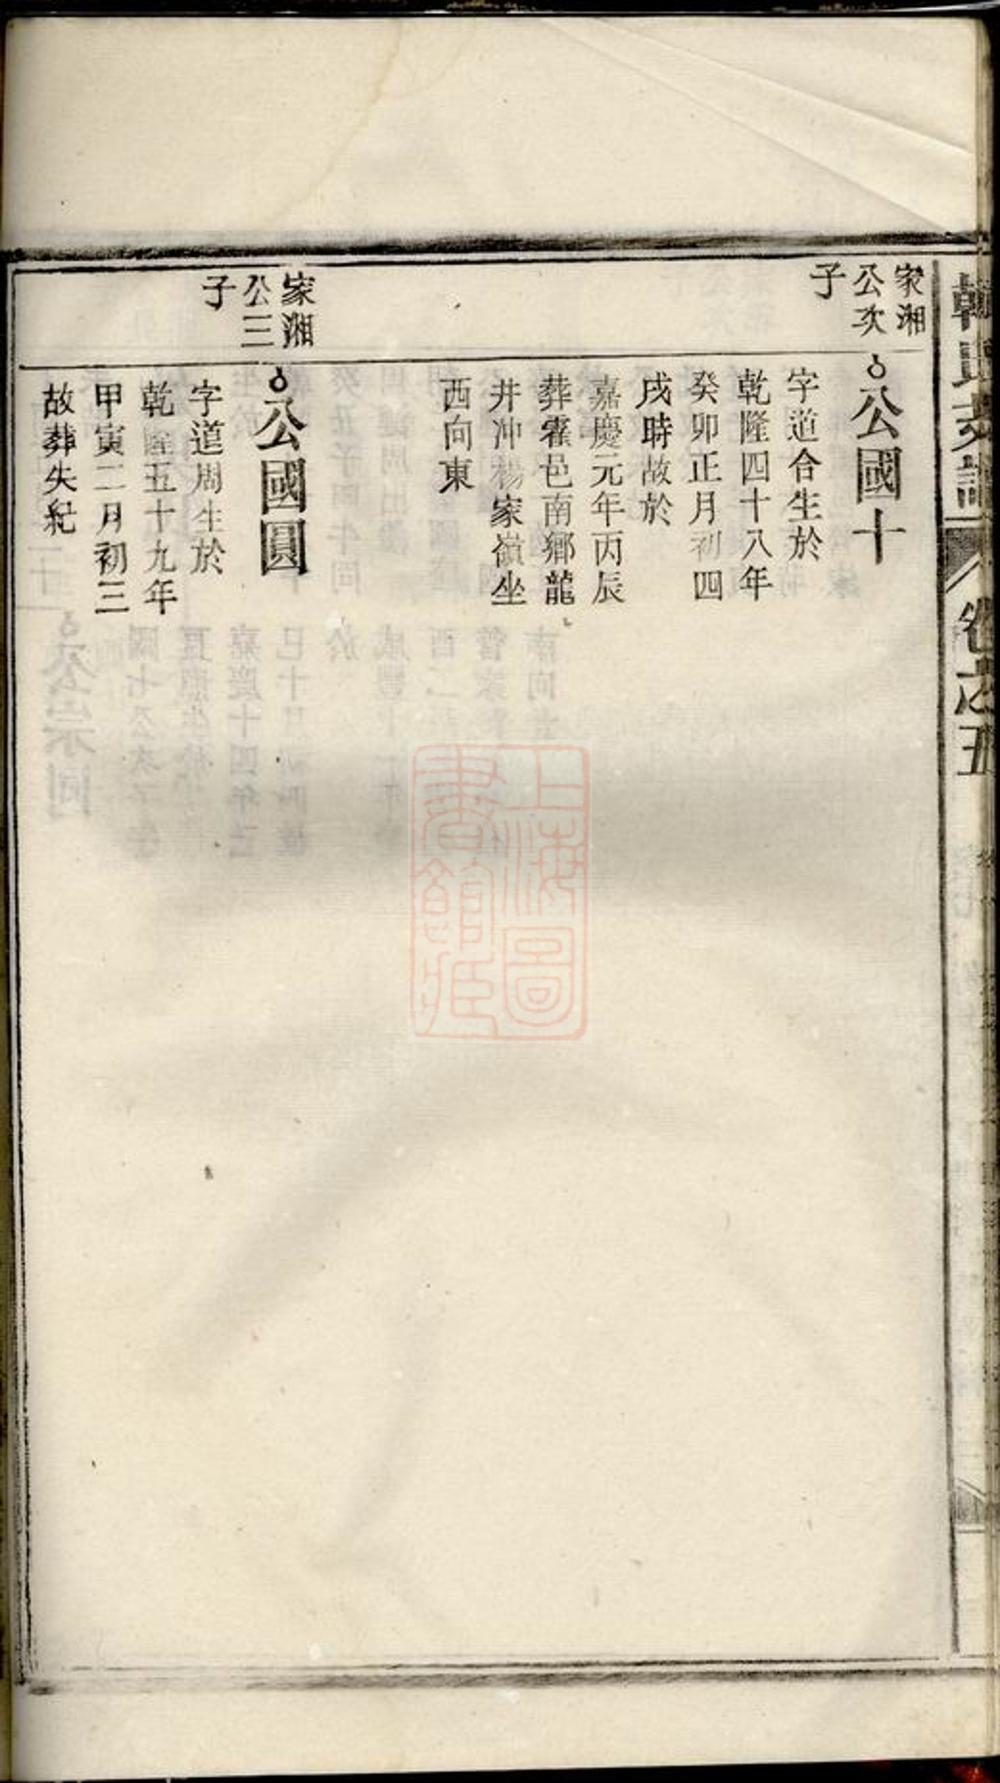 卷之五
家湘
公次
子
公國十
字道合生於
乾隆四十八年
癸卯正月初四
戌時故於
嘉慶元年丙辰
葬霍邑南鄉龍
井冲楊家嶺坐
西向東
家湘
公三
子
公國圓
字道周生於
乾隆五十九年
甲寅二月初三
故葬失紀
上海圖
書館藏